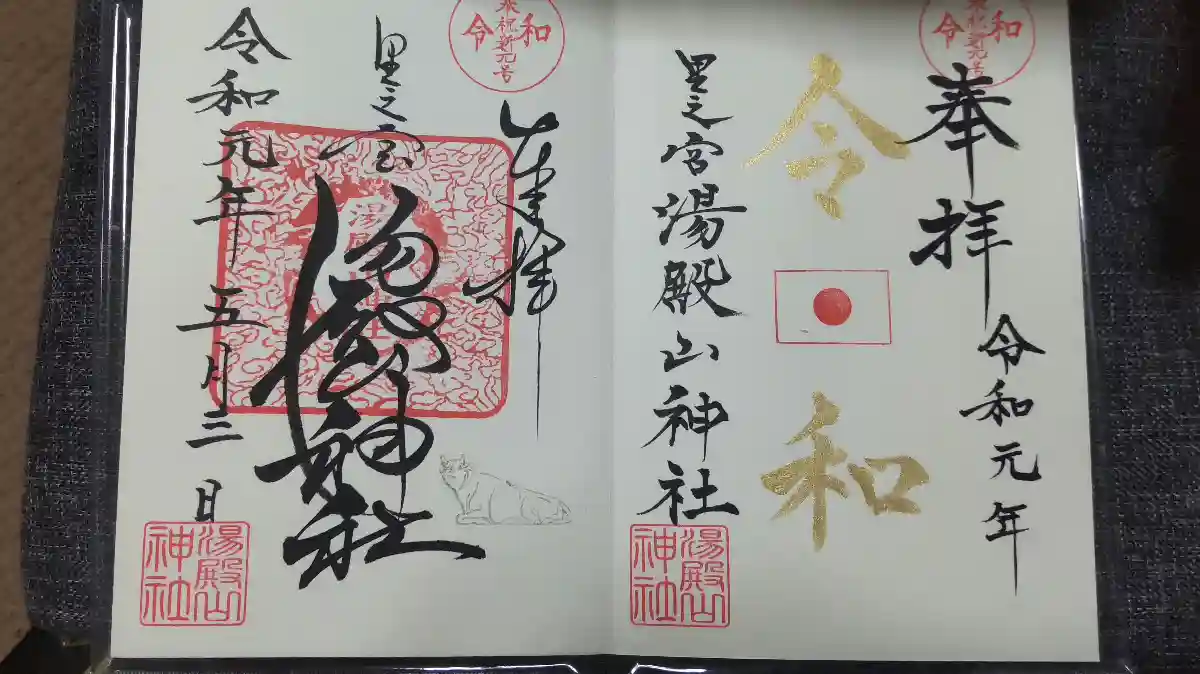 奉拝
令和元年
令和
奉祝新元号
令和
里之宮湯殿山神社
湯殿山神社
奉祝新元号
令和
奉拝
里之宮
湯殿山神社
令和元年五月三日
湯殿山神社